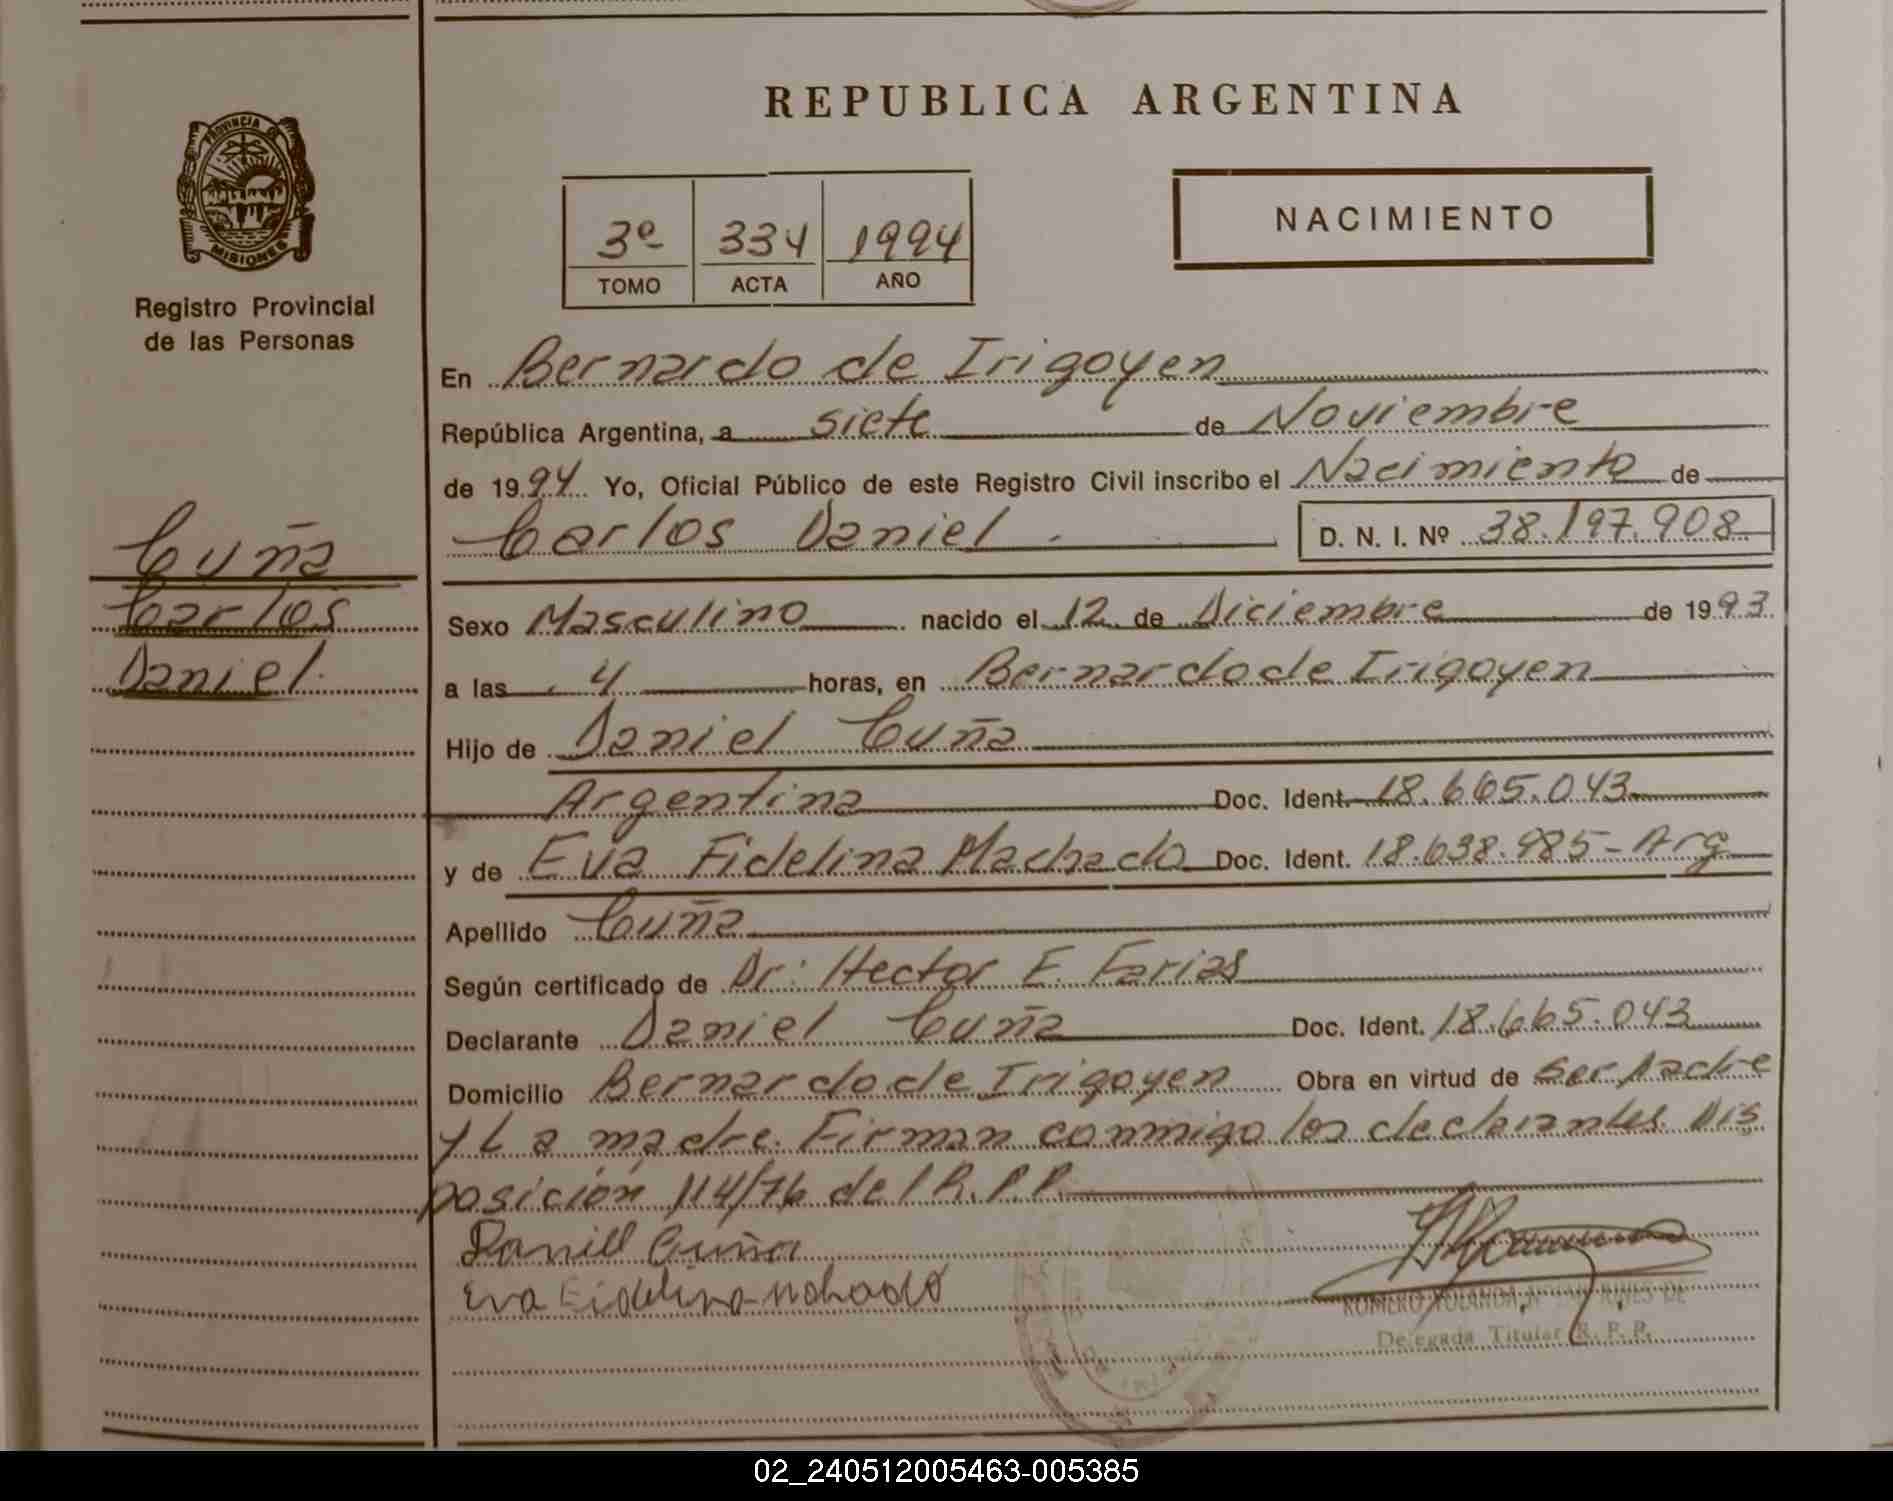 REPUBLICA ARGENTINA
PROVINCIA DE
MISIONES
Registro Provincial
de las Personas
3º 334 1994
TOMO ACTA AÑO
NACIMIENTO
En Bernardo de Irigoyen
República Argentina, a siete de Noviembre
de 1994 Yo, Oficial Público de este Registro Civil inscribo el Nacimiento de
Carlos Daniel D. N. I. Nº 38.197.908
Cuña
Carlos
Daniel
Sexo Masculino nacido el 12 de Diciembre de 1993
a las 4 horas, en Bernardo de Irigoyen
Hijo de Daniel Cuña
Argentina Doc. Ident. 18.665.043
y de Eva Fidelina Machado Doc. Ident. 18.638.985 - Arg
Apellido Cuña
Según certificado de Dr: Hector E. Farias
Declarante Daniel Cuña Doc. Ident. 18.665.043
Domicilio Bernardo de Irigoyen Obra en virtud de ser Padre
y La madre. Firman conmigo los declarantes. Dis
posición 114/76 del R.P.P.
Daniel Cuña
Eva Fidelina
ROMERO YOLANDA
Delegada Titular R. P. P.
02_240512005463-005385